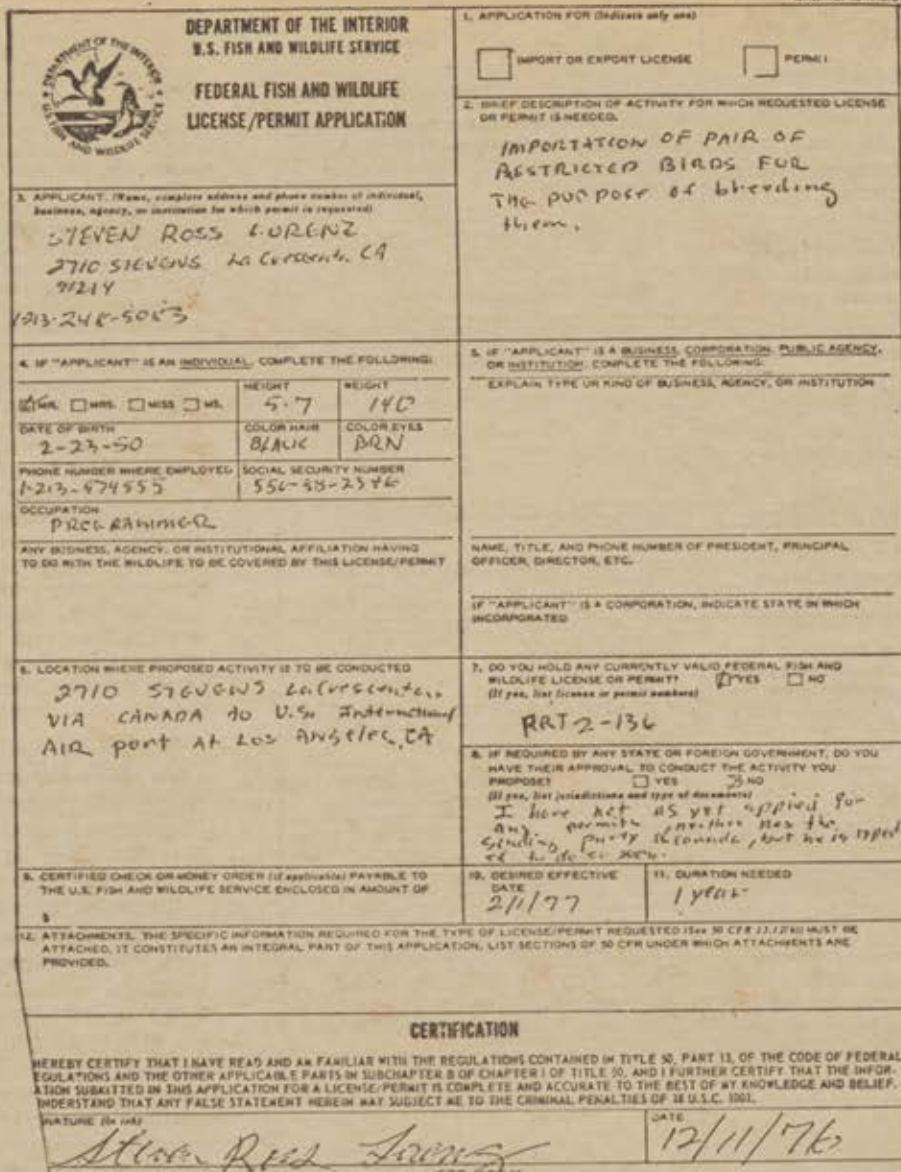 DEPARTMENT OF THE INTERIOR
U.S. FISH AND WILDLIFE SERVICE
FEDERAL FISH AND WILDLIFE
LICENSE/PERMIT APPLICATION
DEPARTMENT OF THE INTERIOR
U.S. FISH AND WILDLIFE SERVICE
1. APPLICATION FOR (Indicate only one)
IMPORT OR EXPORT LICENSE
PERMIT
2. BRIEF DESCRIPTION OF ACTIVITY FOR WHICH REQUESTED LICENSE
OR PERMIT IS NEEDED.
IMPORTATION OF PAIR OF
RESTRICTED BIRDS FOR
THE PURPOSE of breeding
them.
3. APPLICANT. (Name, complete address and phone number of individual,
business, agency, or institution for which permit is requested)
STEVEN ROSS LORENZ
2710 STEVENS La Crescenta, CA
91214
4. IF "APPLICANT" IS AN INDIVIDUAL, COMPLETE THE FOLLOWING:
MR. MRS. MISS MS.
HEIGHT
5-7
WEIGHT
140
DATE OF BIRTH
2-23-50
COLOR HAIR
BLACK
COLOR EYES
BRN
PHONE NUMBER WHERE EMPLOYED
SOCIAL SECURITY NUMBER
OCCUPATION
PROGRAMMER
ANY BUSINESS, AGENCY, OR INSTITUTIONAL AFFILIATION HAVING
TO DO WITH THE WILDLIFE TO BE COVERED BY THIS LICENSE/PERMIT
5. IF "APPLICANT" IS A BUSINESS, CORPORATION, PUBLIC AGENCY,
OR INSTITUTION, COMPLETE THE FOLLOWING:
EXPLAIN TYPE OR KIND OF BUSINESS, AGENCY, OR INSTITUTION
NAME, TITLE, AND PHONE NUMBER OF PRESIDENT, PRINCIPAL
OFFICER, DIRECTOR, ETC.
IF "APPLICANT" IS A CORPORATION, INDICATE STATE IN WHICH
INCORPORATED
6. LOCATION WHERE PROPOSED ACTIVITY IS TO BE CONDUCTED
2710 STEVENS LaCrescenta,
VIA CANADA to U.S. International
AIR port At Los Angeles, CA
7. DO YOU HOLD ANY CURRENTLY VALID FEDERAL FISH AND
WILDLIFE LICENSE OR PERMIT? YES NO
(If yes, list license or permit numbers)
PRT 2-136
8. IF REQUIRED BY ANY STATE OR FOREIGN GOVERNMENT, DO YOU
HAVE THEIR APPROVAL TO CONDUCT THE ACTIVITY YOU
PROPOSE? YES NO
(If yes, list jurisdictions and type of documents)
I have not as yet applied for
any permits neither has the
sending party, but he is
to do so
9. CERTIFIED CHECK OR MONEY ORDER (if applicable) PAYABLE TO
THE U.S. FISH AND WILDLIFE SERVICE ENCLOSED IN AMOUNT OF
$
10. DESIRED EFFECTIVE
DATE
2/1/77
11. DURATION NEEDED
1 year
12. ATTACHMENTS. THE SPECIFIC INFORMATION REQUIRED FOR THE TYPE OF LICENSE/PERMIT REQUESTED (See 50 CFR 13.12(b)) MUST BE
ATTACHED, IT CONSTITUTES AN INTEGRAL PART OF THIS APPLICATION. LIST SECTIONS OF 50 CFR UNDER WHICH ATTACHMENTS ARE
PROVIDED.
CERTIFICATION
HEREBY CERTIFY THAT I HAVE READ AND AM FAMILIAR WITH THE REGULATIONS CONTAINED IN TITLE 50, PART 13, OF THE CODE OF FEDERAL
EGULATIONS AND THE OTHER APPLICABLE PARTS IN SUBCHAPTER B OF CHAPTER I OF TITLE 50, AND I FURTHER CERTIFY THAT THE INFOR-
ATION SUBMITTED IN THIS APPLICATION FOR A LICENSE/PERMIT IS COMPLETE AND ACCURATE TO THE BEST OF MY KNOWLEDGE AND BELIEF.
UNDERSTAND THAT ANY FALSE STATEMENT HEREIN MAY SUBJECT ME TO THE CRIMINAL PENALTIES OF 18 U.S.C. 1001.
NATURE (In ink)
Steven Ross Lorenz
DATE
12/11/76